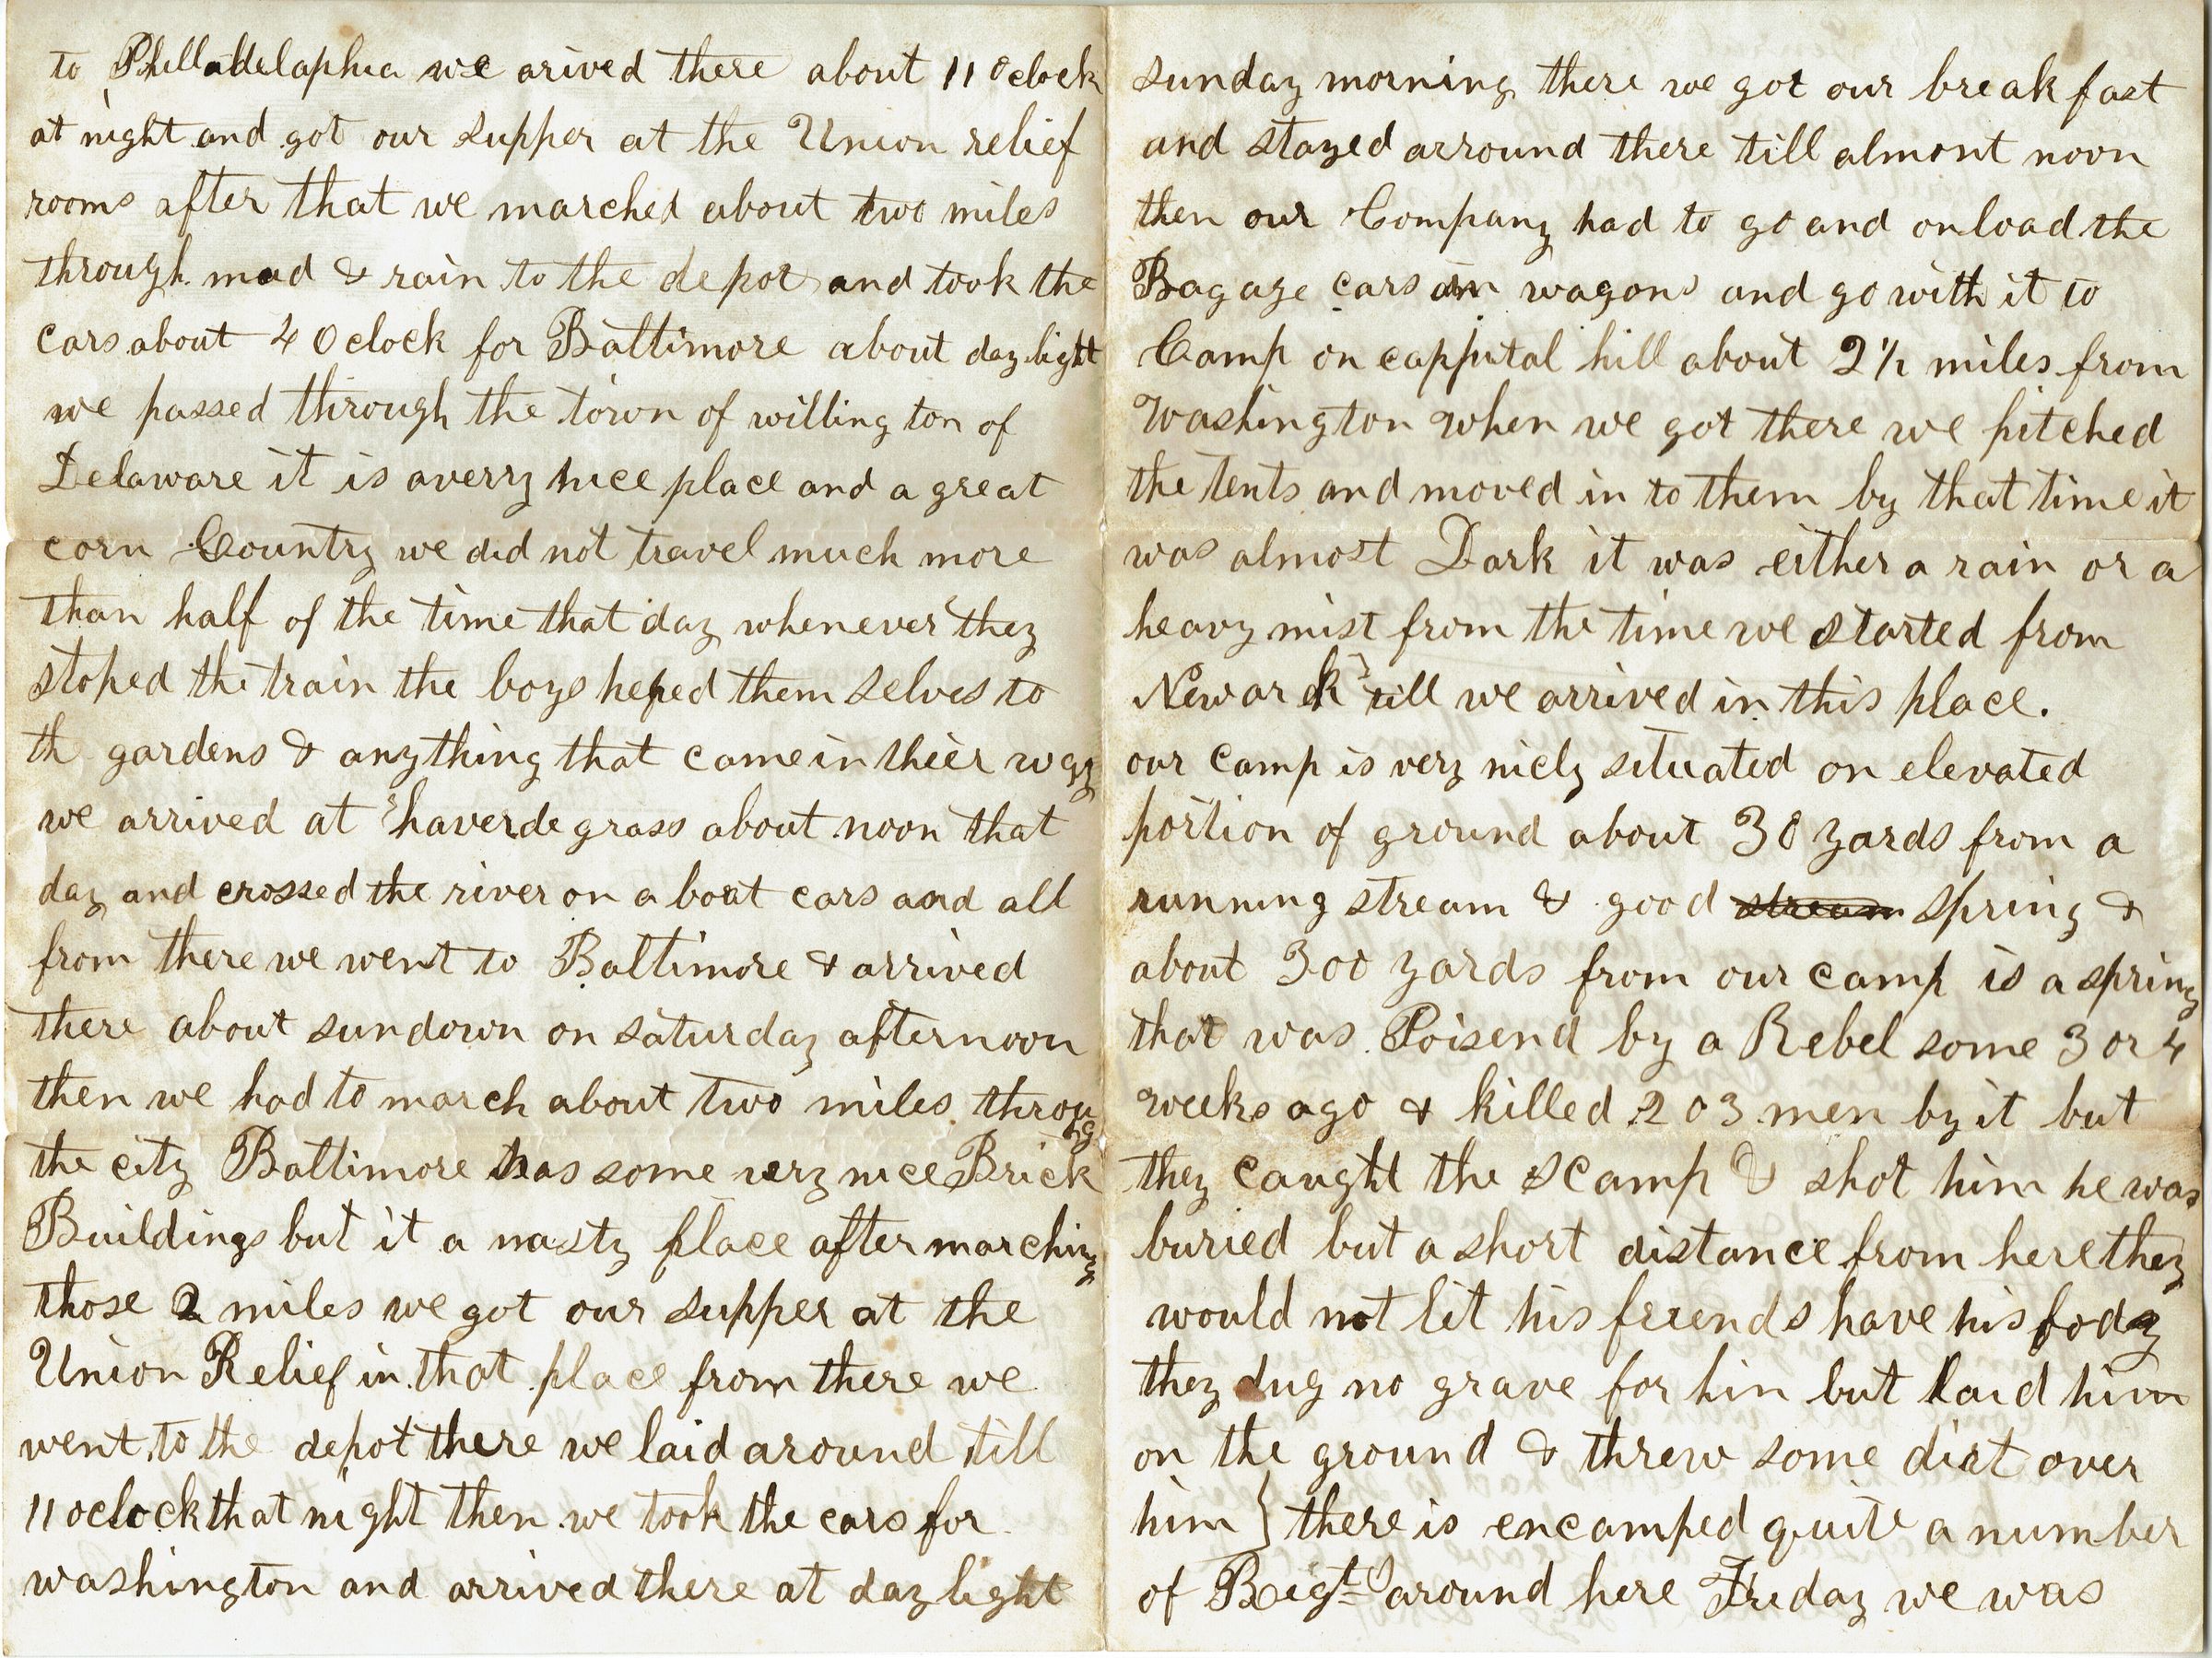 to Philladelaphia we arived there about 11 Oclock
at night and got our supper at the Union relief
rooms after that we marched about two miles
through mud & rain to the depot and took the
cars about 4 Oclock for Baltimore about day light
we passed through the town of willing ton of
Delaware it is a verry nice place and a great
corn Country we did not travel much more
than half of the time that day whenever they
stoped the train the boys heped them selves to
th gardens & anything that came in thier way
we arrived at haverde grass about noon that
day and crossed the river on a boat cars and all
from there we went to Baltimore & arrived
there about sundown on saturday afternoon
then we had to march about two miles throug
the city Baltimore has some very nice Brick
Buildings but it a nasty place after marching
those 2 miles we got our supper at the
Union Relief in that place from there we
went to the depot there we laid around till
11 oclock that night then we took the cars for
washington and arrived there at day light
sunday morning there we got our break fast
and stayed arround there till almost noon
then our Company had to go and onload the
Bagage cars in wagons and go with it to
Camp on cappital hill about 2 1/2 miles from
Washington when we got there we pitched
the tents and moved in to them by that time it
was almost Dark it was either a rain or a
heavy mist from the time we started from
Newark till we arrived in this place.
our camp is very nicly situated on elevated
portion of ground about 30 yards from a
running stream & good stream spring &
about 300 yards from our camp is a spring
that was Poisend by a Rebel some 3 or 4
weeks ago & killed 203 men by it but
they caught the scamp & shot him he was
buried but a short distance from here they
would not let his friends have his body
they dug no grave for hin but laid him
on the ground & threw some dirt over
him } there is encamped quite a number
of Regts around here Friday we was